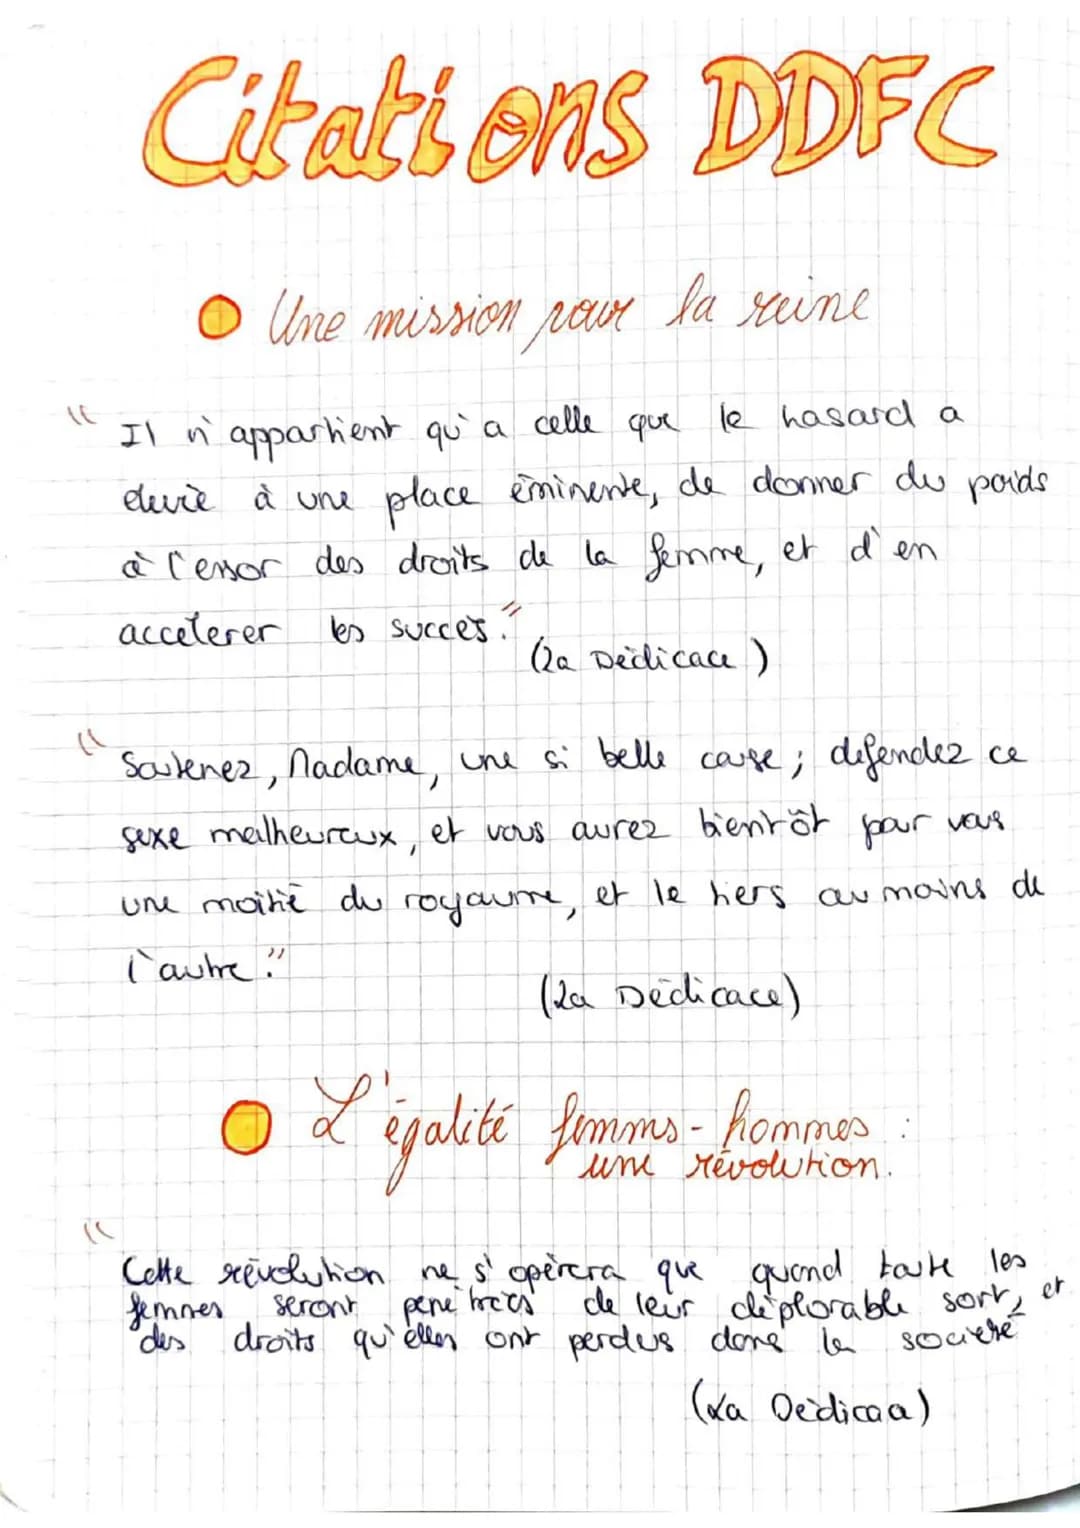 Citations DDFC
Une mission pour la reine
" Il n'appartient qu'a celle que le hasard a
élevée à une place éminente, de donner du poids
à l'essor des droits de la femme, et d'en
accélerer les succès."
(La Dédicace)
" Soutenez, Madame, une si belle cause; défendez ce
sexe malheureux, et vous aurez bientôt pour vous
une moitié du royaume, et le tiers au moins de
l'autre."
(La Dédicace)
L'égalité femms-hommes :
une révolution.
" Cette révolution ne s'opèrera que quand toute les
femmes seront pénétrées de leur déplorable sort, et
des droits qu'elles ont perdus dans la société
(La Dédicace)